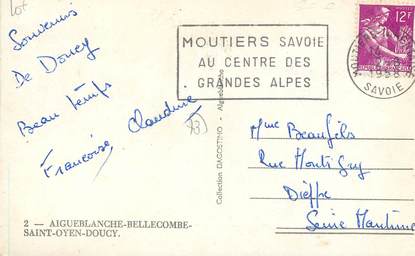 Lot
Souvenirs
De Doucy
Beau temps
Françoise, Claudine
73
MOUTIERS SAVOIE
AU CENTRE DES
GRANDES ALPES
12F
MOUTIERS
1958
SAVOIE
Collection DAGOSTINO - Aigueblanche
Mme Beaufils
Rue Montigny
Dieppe
Seine Maritime
2 — AIGUEBLANCHE-BELLECOMBE-
SAINT-OYEN-DOUCY.